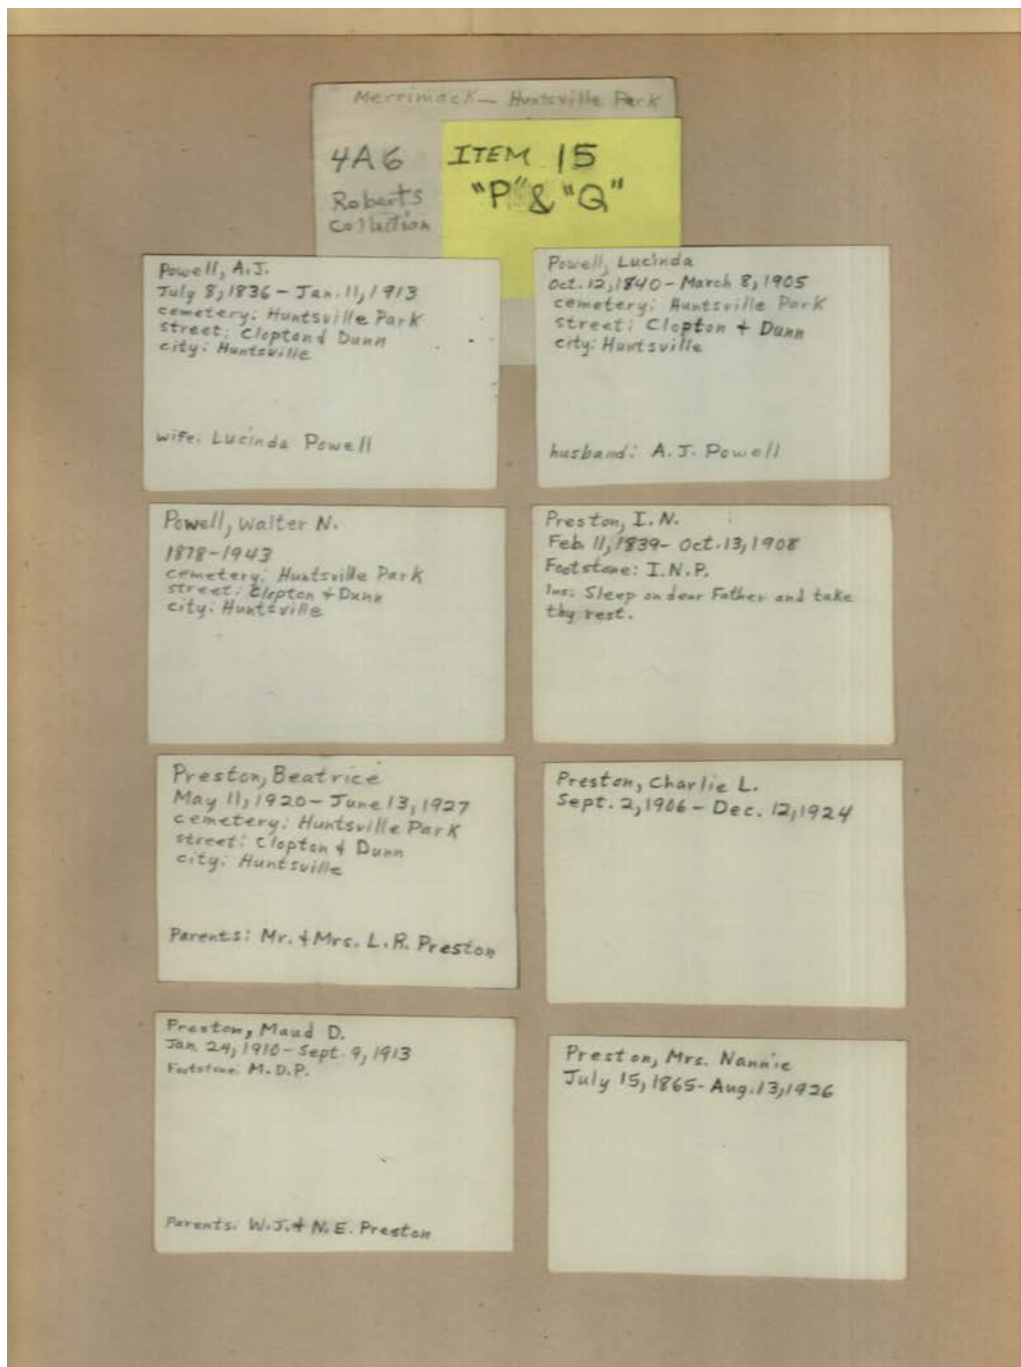 Merrimack - Huntsville Park
4A6
Roberts
Collection
ITEM 15
"P" & "Q"
Powell, A.J.
July 8, 1836 - Jan. 11, 1913
cemetery: Huntsville Park
street: Clopton & Dunn
city: Huntsville
wife: Lucinda Powell
Powell, Lucinda
Oct. 12, 1840 - March 8, 1905
cemetery: Huntsville Park
street: Clopton & Dunn
city: Huntsville
husband: A.J. Powell
Powell, Walter N.
1878-1943
cemetery: Huntsville Park
street: Clopton & Dunn
city: Huntsville
Preston, I.N.
Feb. 11, 1839 - Oct. 13, 1908
Footstone: I.N.P.
Ins: Sleep on dear Father and take
thy rest.
Preston, Beatrice
May 11, 1920 - June 13, 1927
cemetery: Huntsville Park
street: Clopton & Dunn
city: Huntsville
Parents: Mr. & Mrs. L.R. Preston
Preston, Charlie L.
Sept. 2, 1906 - Dec. 12, 1924
Preston, Maud D.
Jan. 24, 1910 - Sept. 9, 1913
Footstone: M.D.P.
Parents: W.J. & N.E. Preston
Preston, Mrs. Nannie
July 15, 1865 - Aug. 13, 1926